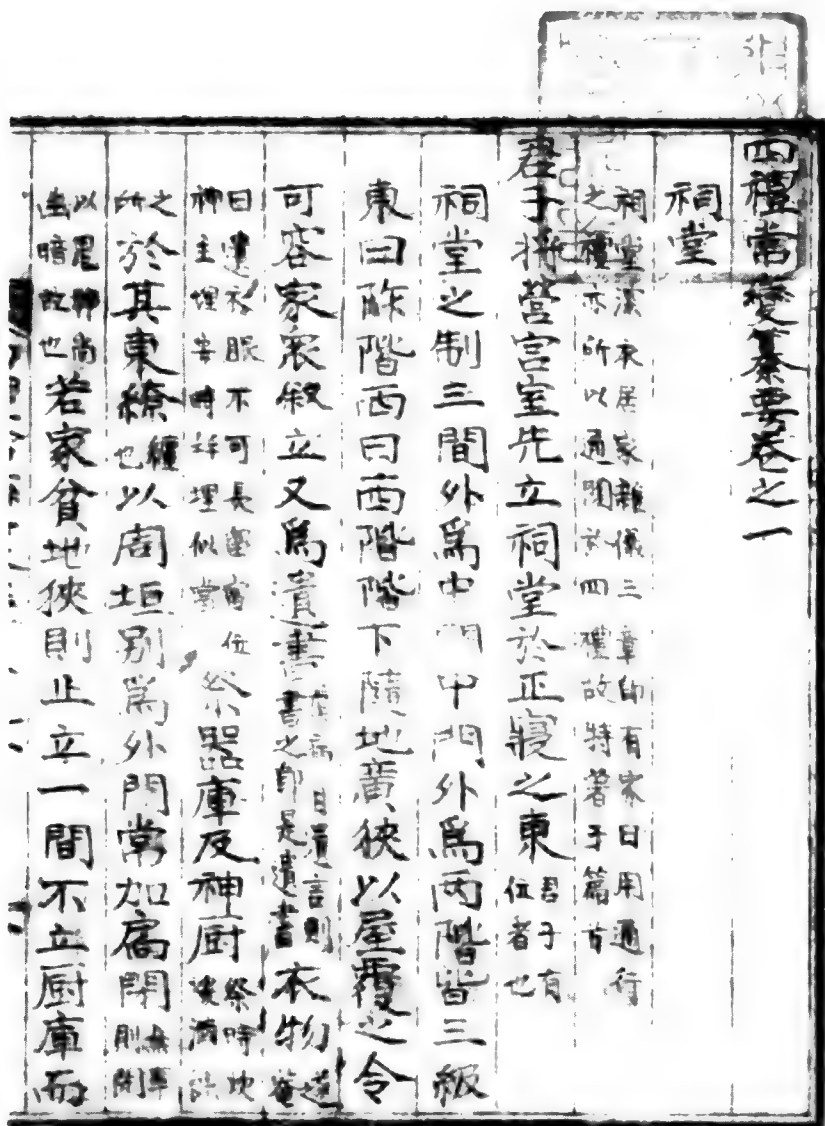 四禮常變纂要卷之一
祠堂
祠堂溪承居家雜儀二章即有家日用通行
之禮亦所以通開於四禮故特著于篇首
君子將營宮室先立祠堂於正寢之東君子有
位者也
祠堂之制三間外爲中門中門外爲兩階皆三級
東曰阼階西曰西階階下隨地廣狹以屋覆之令
可容家衆叙立又爲遺書目遺言則
書之即是遺書衣物
曰遺衣服不可長
神主埋安時祥埋似當祭器庫及神厨祭時
所之於其東繚纏
也以周垣别爲外門常加扃閉無事
則閉
以鬼神尚
幽暗故也若家貧地狹則止立一間不立厨庫而